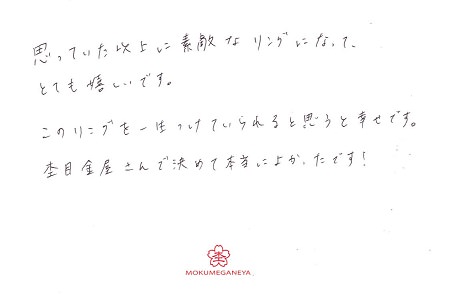 思っていた以上に素敵なリングになって、
とても嬉しいです。
このリングを一生つけていられると思うと幸せです。
杢目金屋さんで決めて本当によかったです!
杢
MOKUMEGANEYA